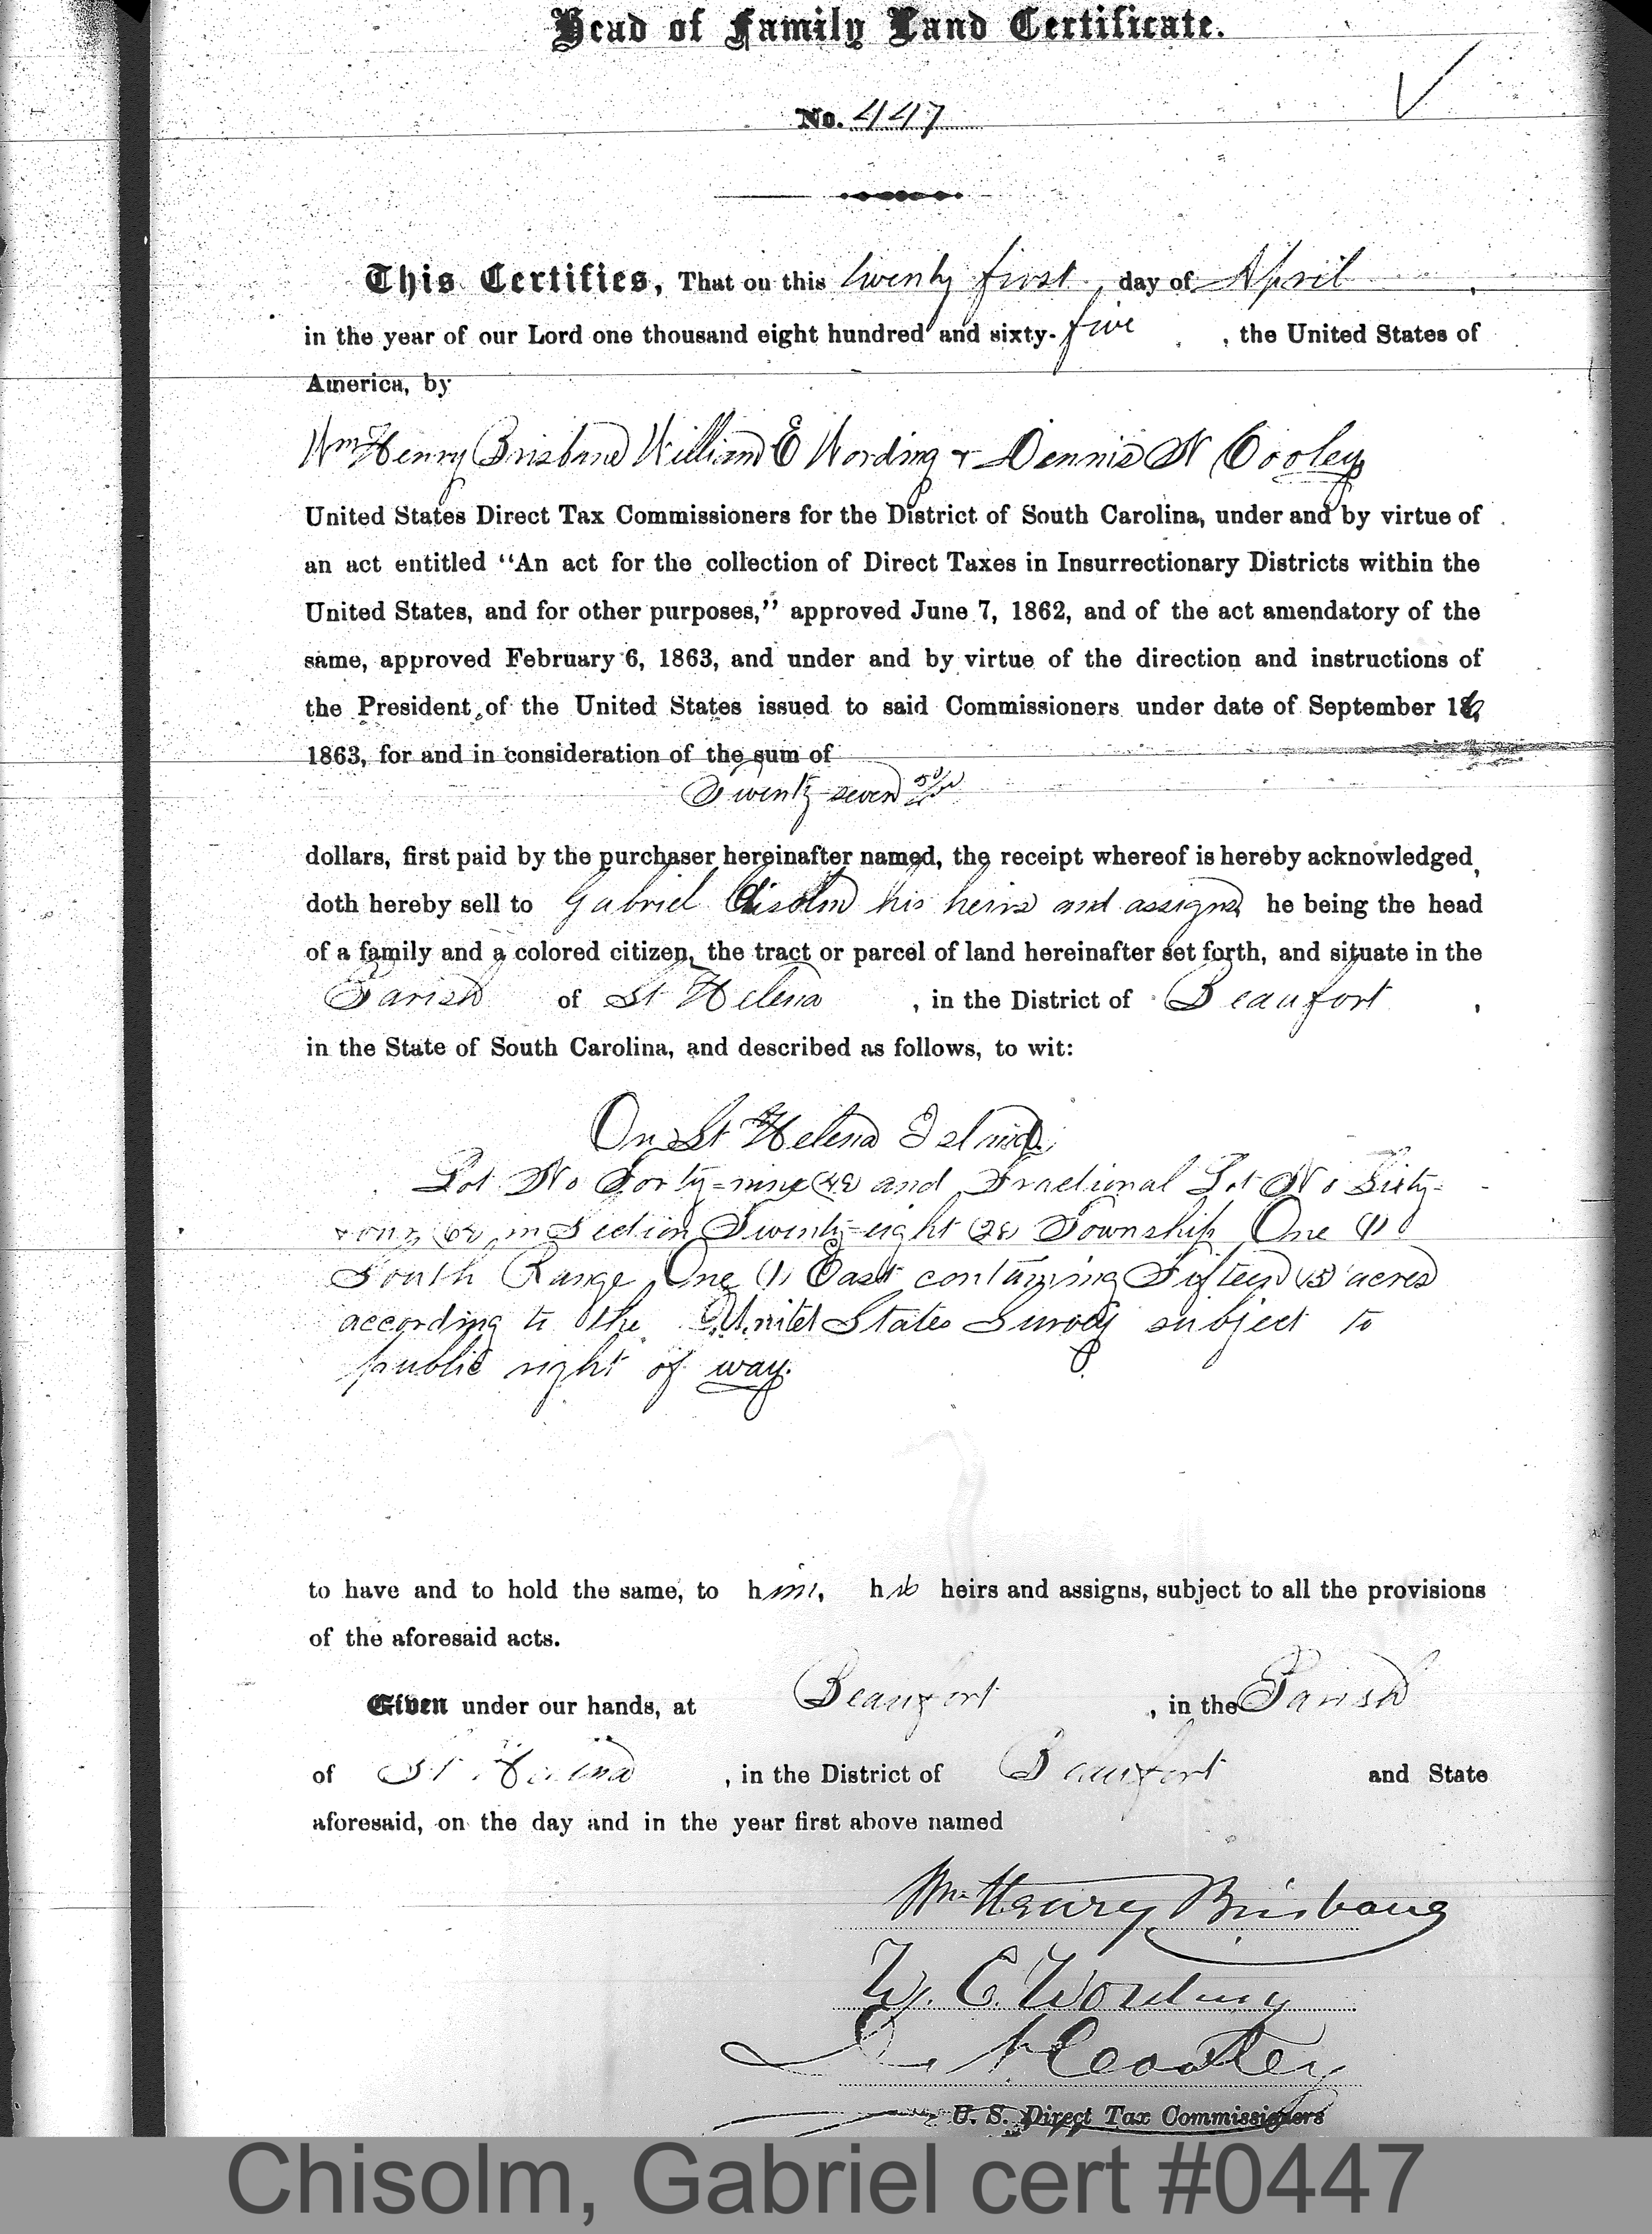 Head of Family Land Certificate.
No. 447
This Certifies, That on this twenty first day of April,
in the year of our Lord one thousand eight hundred and sixty-five, the United States of
America, by
Wm Henry Brisbane William E Wording & Dennis N Cooley
United States Direct Tax Commissioners for the District of South Carolina, under and by virtue of
an act entitled "An act for the collection of Direct Taxes in Insurrectionary Districts within the
United States, and for other purposes," approved June 7, 1862, and of the act amendatory of the
same, approved February 6, 1863, and under and by virtue of the direction and instructions of
the President of the United States issued to said Commissioners under date of September 16
1863, for and in consideration of the sum of
Twenty-seven 50/100
dollars, first paid by the purchaser hereinafter named, the receipt whereof is hereby acknowledged,
doth hereby sell to Gabriel Chisolm his heirs and assigns he being the head
of a family and a colored citizen, the tract or parcel of land hereinafter set forth, and situate in the
Parish of St Helena, in the District of Beaufort,
in the State of South Carolina, and described as follows, to wit:
On St Helena Island.
Lot No Forty-nine (49) and Fractional Lot No Sixty-
in Section Twenty-eight (28) Township One (1)
South Range One (1) East containing Fifteen (15) acres
according to the United States Survey subject to
public right of way.
to have and to hold the same, to him, his heirs and assigns, subject to all the provisions
of the aforesaid acts.
Given under our hands, at Beaufort, in the Parish
of St Helena, in the District of Beaufort and State
aforesaid, on the day and in the year first above named
Wm Henry Brisbane
W. E. Wording
D. N. Cooley
U. S. Direct Tax Commissioners
Chisolm, Gabriel cert #0447